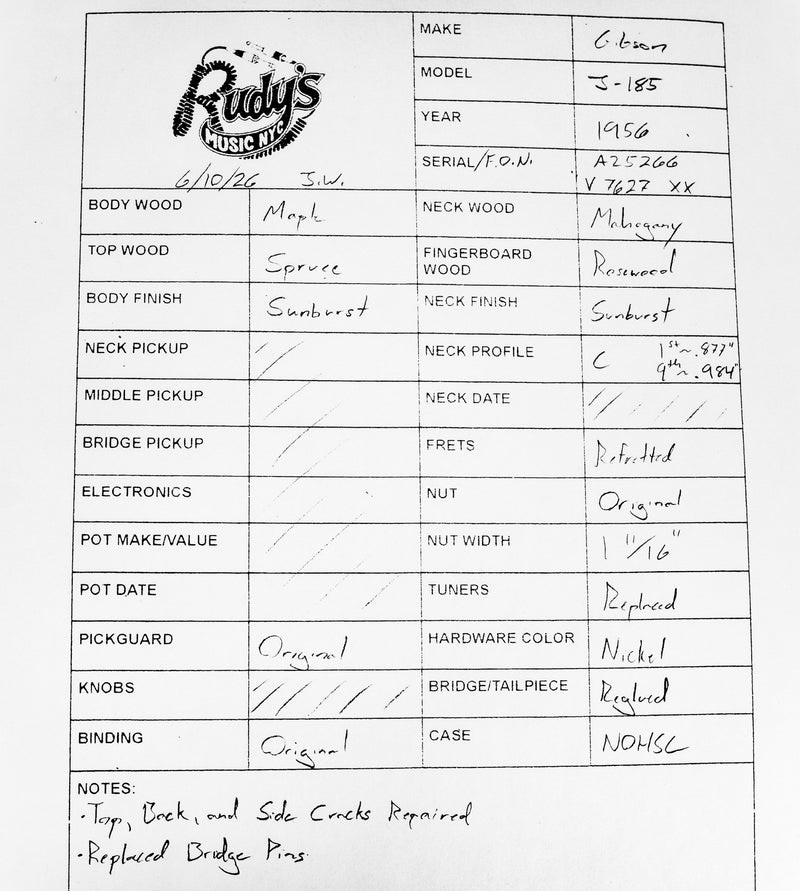 Rudy's
MUSIC NYC
6/10/26 J.W.
MAKE Gibson
MODEL J-185
YEAR 1956
SERIAL/F.O.N. A25266
V 7627 XX
BODY WOOD Maple
NECK WOOD Mahogany
TOP WOOD Spruce
FINGERBOARD WOOD Rosewood
BODY FINISH Sunburst
NECK FINISH Sunburst
NECK PICKUP
NECK PROFILE C 1st ~ .877"
9th ~ .984"
MIDDLE PICKUP
NECK DATE
BRIDGE PICKUP
FRETS Refretted
ELECTRONICS
NUT Original
POT MAKE/VALUE
NUT WIDTH 1 11/16"
POT DATE
TUNERS Replaced
PICKGUARD Original
HARDWARE COLOR Nickel
KNOBS
BRIDGE/TAILPIECE Reglued
BINDING Original
CASE NOHSC
NOTES:
·Top, Back, and Side Cracks Repaired
·Replaced Bridge Pins